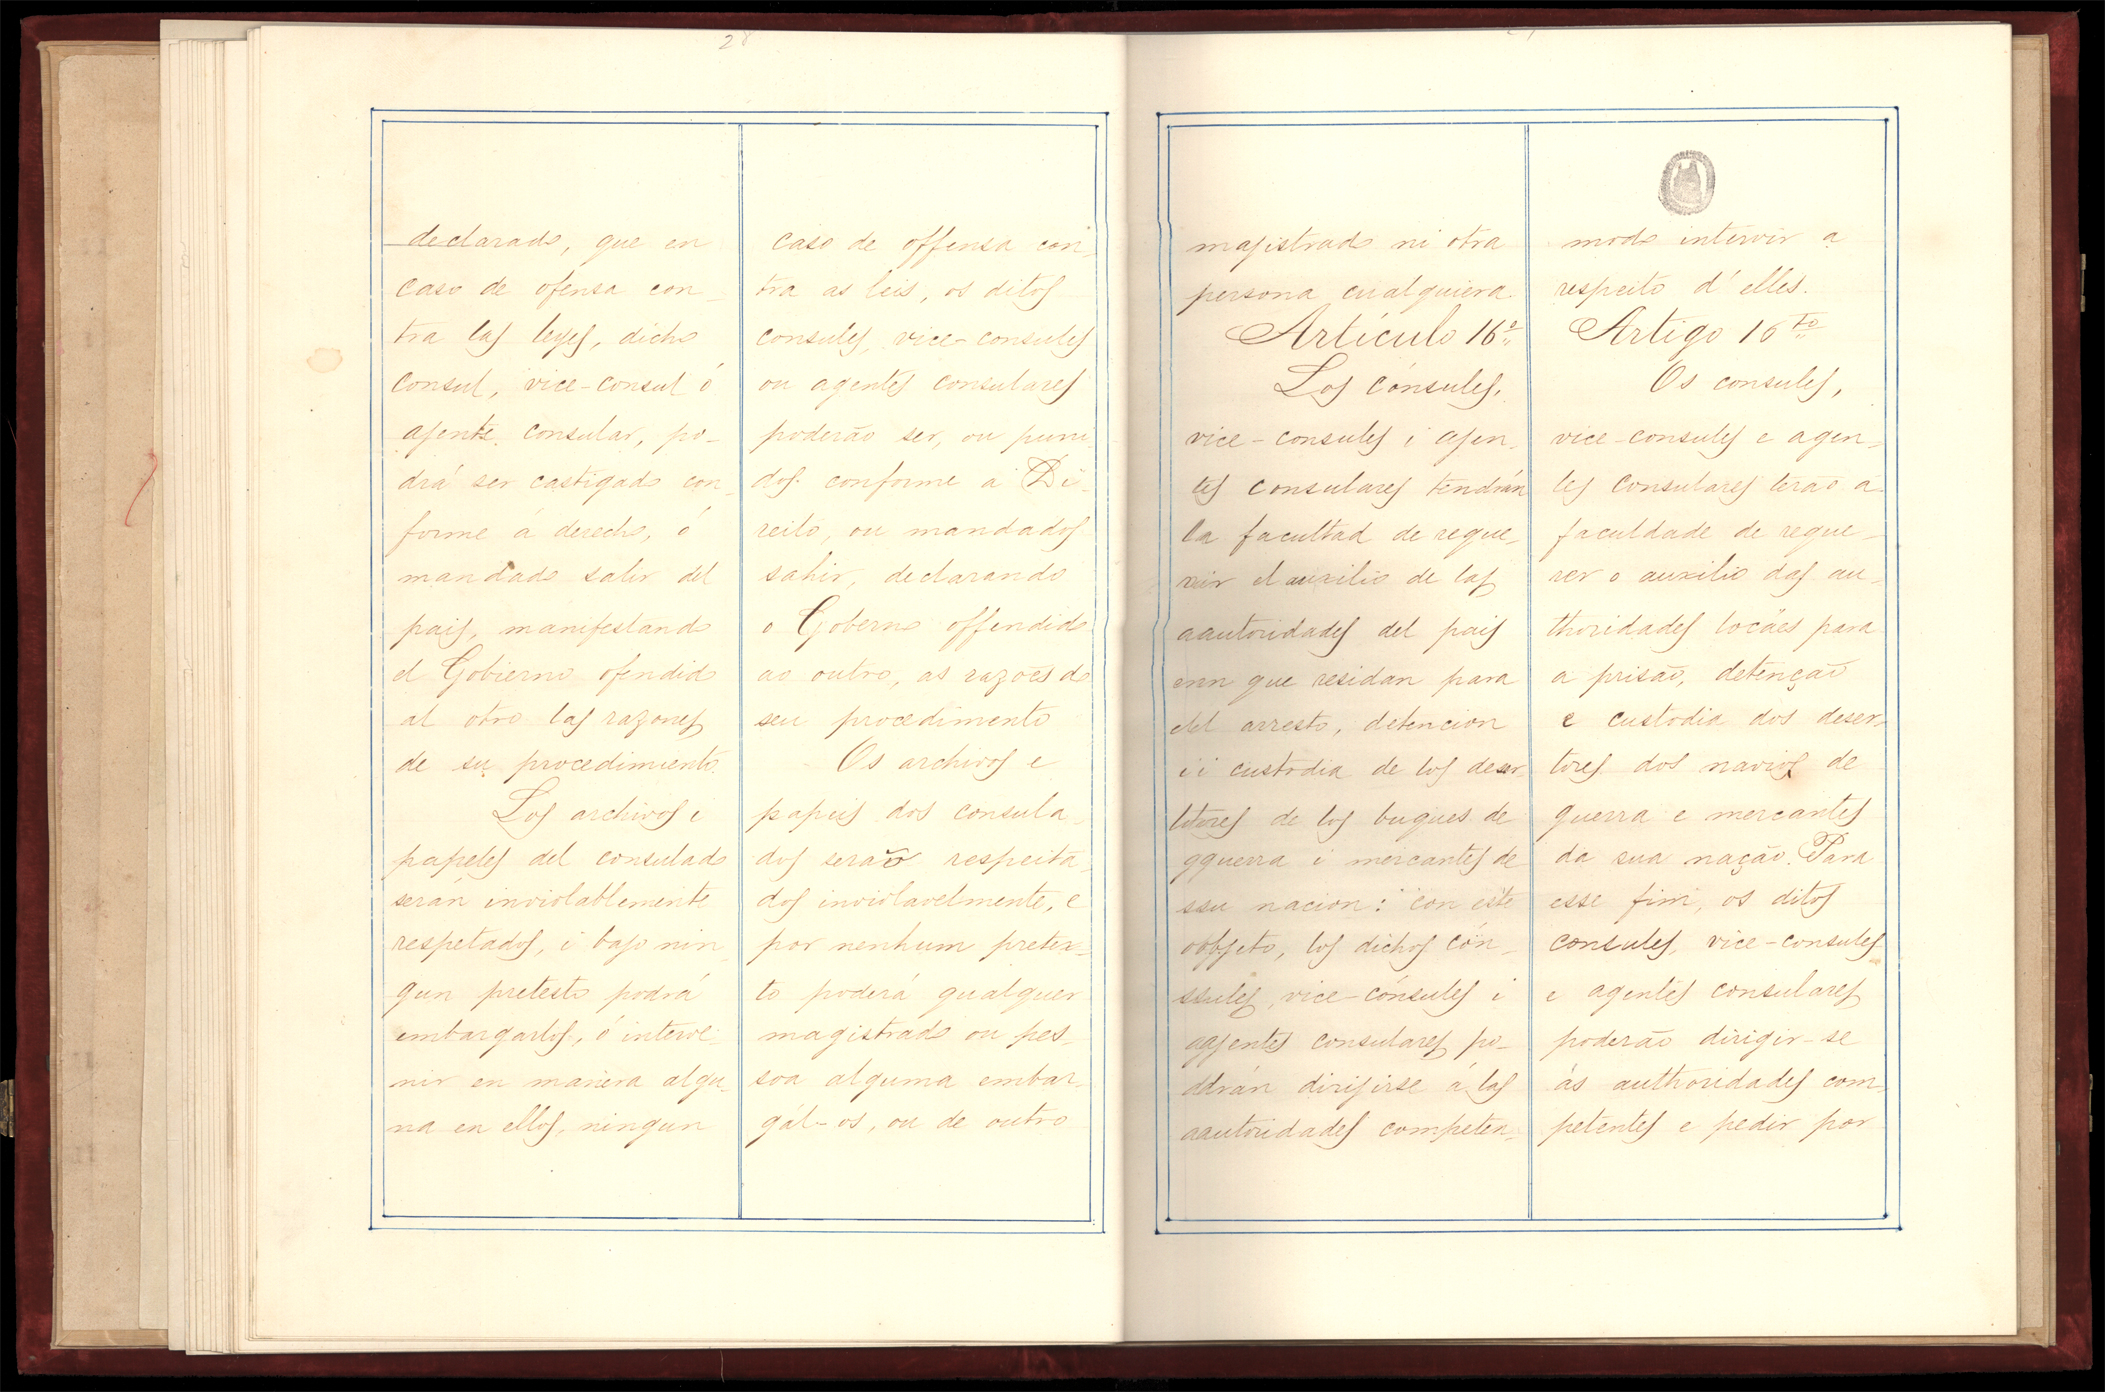 28
declarado, que en
caso de ofensa con-
tra las leyes, dicho
consul, vice-consul ó
ajente consular, po-
drá ser castigado con-
forme á derecho, ó
mandado salir del
pais, manifestando
el Gobierno ofendido
al otro las razones
de su procedimiento.
Los archivos i
papeles del consulado
serán inviolablemente
respetados, i bajo nin-
gun pretesto podrá
embargarlos, ó interve-
nir en manera algu-
na en ellos, ningun
caso de offensa con-
tra as leis, os ditos
consules, vice-consules
ou agentes consulares
poderão ser, ou puni-
dos conforme a Di-
reito, ou mandados
sahir, declarando
o Goberno offendido
ao outro, as razoẽs do
seu procedimento
Os archivos e
papeis dos consula-
dos seraõ respeita-
dos inviolavelmente, e
por nenhum pretex-
to poderá qualquer
magistrado ou pes-
soa alguma embar-
gál-os, ou de outro
majistrado ni otra
persona cualquiera.
Artículo 16º
Los cónsules,
vice-consules i ajen-
tes consulares tendrán
la facultad de reque-
rir el auxilio de las
aautoridades del pais
enn que residan para
elel arresto, detencion
i i custodia de los deser-
totores de los buques de
gguerra i mercantes de
ssu nacion: con este
oobjeto, los dichos cón-
ssules, vice-cónsules i
aajentes consulares po-
ddrán dirijirse á las
aautoridades competen-
modo intervir a
respeito d'elles.
Artigo 16to
Os consules,
vice-consules e agen-
tes consulares terao a
faculdade de reque-
rer o auxilio das au-
thoridades locáes para
a prisaõ, detençaõ
e custodia dos deser-
tores dos navios de
guerra e mercantes
da sua nação. Para
esse fim, os ditos
consules, vice-consules
e agentes consulares
poderão dirigir-se
ás authoridades com-
petentes e pedir por